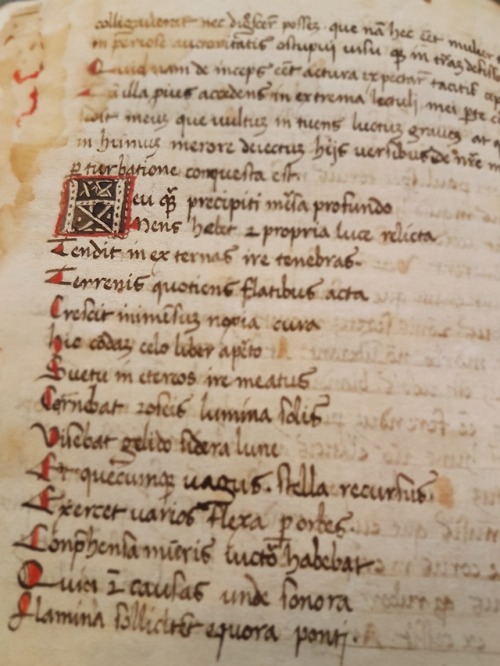 colligauerat nec possez. que nā hec eēt mulier
imperiose auctoritatis ostupui visu q̄ in defi
Quid nam de inceps eēt actura expectar̄ tacitꝰ
illa pius accedens in extrema lectuli mei p̄te
meiꝰ que vultuꝫ in tuens luctuꝫ grauē at
in humuꝫ merore deiectuꝫ hijs versibus de
ꝑ turbatione conquesta est
Heu q̄ꝫ precipiti mēsa profundo
Mens hebet ⁊ propria luce relicta
Tendit in externas ire tenebras.
Terrenis quotiens flatibus acta
Crescit inimēsuꝫ noxia cura
hic cōdaꝫ celo liber aꝑto
Suetꝰ in etereos ire meatus
Cern̄ebat roseis lumina solis
Visebat gelido sidera lune
Et quecumqꝫ vagus. stella recursus.
Exercet varios flexa ꝑ orbes
Conp̄hensa nūeris victor̄ habebat
Quin ⁊ causas unde sonora
Flamina sollicitēt equora ponti.